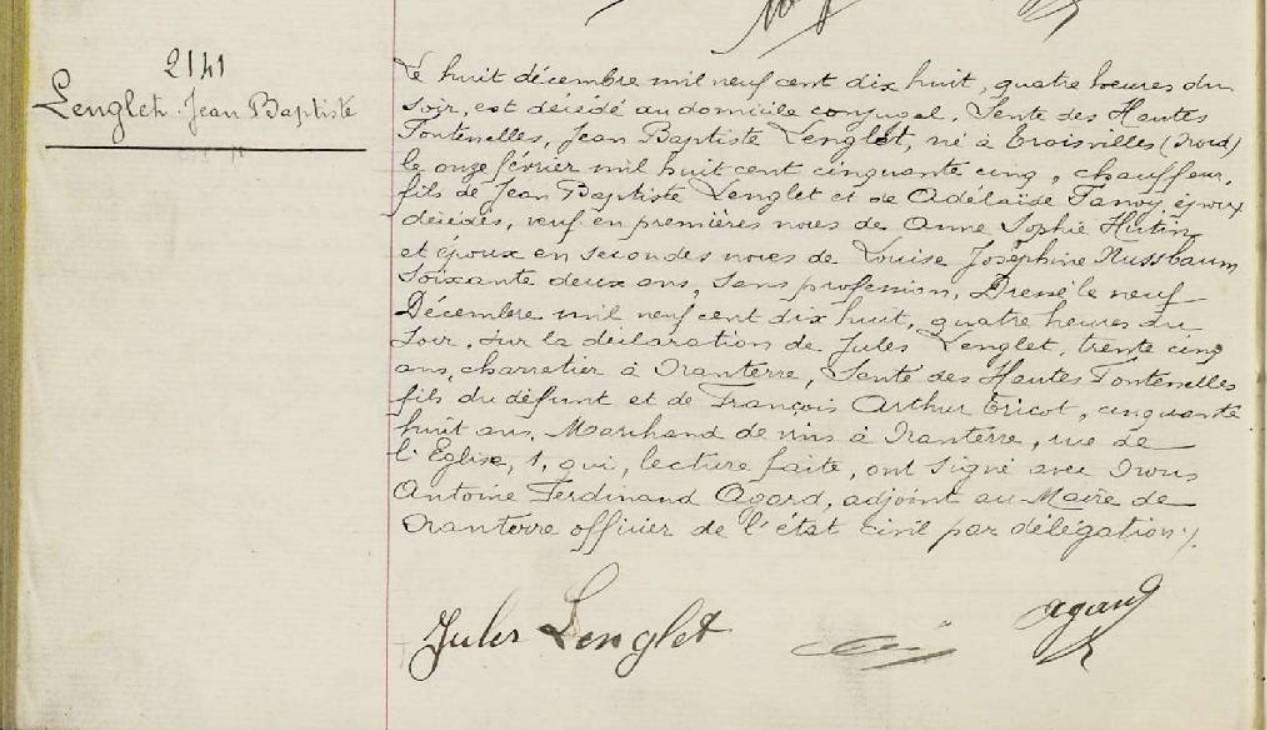 2141
Lenglet Jean Baptiste
Le huit décembre mil neuf cent dix huit, quatre heures du
soir, est décédé au domicile conjugal, Sente des Hautes
Fontenelles, Jean Baptiste Lenglet, né à Troisvilles (Nord)
le onze février mil huit cent cinquante cinq, chauffeur,
fils de Jean Baptiste Lenglet et de Adélaïde Fanoy, époux
décédés, veuf en premières noces de Anne Sophie Hutin
et époux en secondes noces de Louise Joséphine Nussbaum
soixante deux ans, sans profession. Dressé le neuf
Décembre mil neuf cent dix huit, quatre heures du
soir, sur la déclaration de Jules Lenglet, trente cinq
ans, charretier à Nanterre, Sente des Hautes Fontenelles
fils du défunt et de François Arthur Tricot, cinquante
huit ans, Marchand de vins à Nanterre, rue de
l'Eglise, 1, qui, lecture faite, ont signé avec Nous
Antoine Ferdinand Agard, adjoint au Maire de
Nanterre officier de l'état civil par délégation ./.
Jules Lenglet
agard